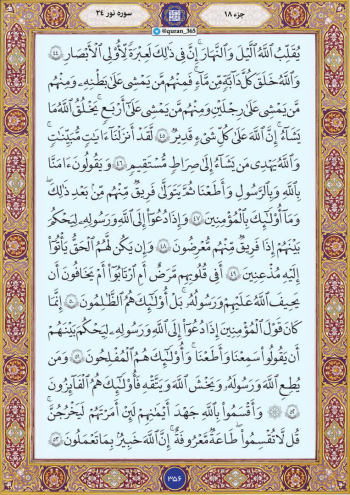 جزء ۱۸
سوره نور ۲۴
@quran_365
يُقَلِّبُ اللَّهُ الَّيْلَ وَالنَّهَارَ إِنَّ فِي ذَٰلِكَ لَعِبْرَةً لِّأُولِي الْأَبْصَارِ ۴۴
وَاللَّهُ خَلَقَ كُلَّ دَابَّةٍ مِّن مَّاءٍ فَمِنْهُم مَّن يَمْشِي عَلَىٰ بَطْنِهِ وَمِنْهُم
مَّن يَمْشِي عَلَىٰ رِجْلَيْنِ وَمِنْهُم مَّن يَمْشِي عَلَىٰ أَرْبَعٍ يَخْلُقُ اللَّهُ مَا
يَشَاءُ إِنَّ اللَّهَ عَلَىٰ كُلِّ شَيْءٍ قَدِيرٌ ۴۵ لَّقَدْ أَنزَلْنَا ءَايَاتٍ مُّبَيِّنَاتٍ
وَاللَّهُ يَهْدِي مَن يَشَاءُ إِلَىٰ صِرَاطٍ مُّسْتَقِيمٍ ۴۶ وَيَقُولُونَ ءَامَنَّا
بِاللَّهِ وَبِالرَّسُولِ وَأَطَعْنَا ثُمَّ يَتَوَلَّىٰ فَرِيقٌ مِّنْهُم مِّن بَعْدِ ذَٰلِكَ
وَمَا أُولَٰئِكَ بِالْمُؤْمِنِينَ ۴۷ وَإِذَا دُعُوا إِلَى اللَّهِ وَرَسُولِهِ لِيَحْكُمَ
بَيْنَهُمْ إِذَا فَرِيقٌ مِّنْهُم مُّعْرِضُونَ ۴۸ وَإِن يَكُن لَّهُمُ الْحَقُّ يَأْتُوا
إِلَيْهِ مُذْعِنِينَ ۴۹ أَفِي قُلُوبِهِم مَّرَضٌ أَمِ ارْتَابُوا أَمْ يَخَافُونَ أَن
يَحِيفَ اللَّهُ عَلَيْهِمْ وَرَسُولُهُ بَلْ أُولَٰئِكَ هُمُ الظَّالِمُونَ ۵۰ إِنَّمَا
كَانَ قَوْلَ الْمُؤْمِنِينَ إِذَا دُعُوا إِلَى اللَّهِ وَرَسُولِهِ لِيَحْكُمَ بَيْنَهُمْ
أَن يَقُولُوا سَمِعْنَا وَأَطَعْنَا وَأُولَٰئِكَ هُمُ الْمُفْلِحُونَ ۵۱ وَمَن
يُطِعِ اللَّهَ وَرَسُولَهُ وَيَخْشَ اللَّهَ وَيَتَّقْهِ فَأُولَٰئِكَ هُمُ الْفَائِزُونَ
۵۲ ۞ وَأَقْسَمُوا بِاللَّهِ جَهْدَ أَيْمَانِهِمْ لَئِنْ أَمَرْتَهُمْ لَيَخْرُجُنَّ
قُل لَّا تُقْسِمُوا طَاعَةٌ مَّعْرُوفَةٌ إِنَّ اللَّهَ خَبِيرٌ بِمَا تَعْمَلُونَ ۵۳
۳۵۶